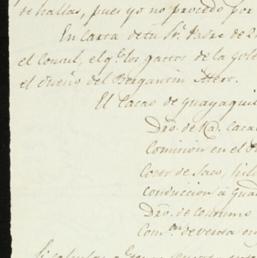 de hallas, pues yo no procedo por
En Carta de tu Sr. Padre de 2
el Consul, el qe. los gastos de la Gole
el dueño del Bergantin
El Cacao de Guayaquil
Dro. de Rl. Caca
Comicion en el
Coser de Saco, hilo
conduccion á
Dro. de consumo
Comon. de venta en